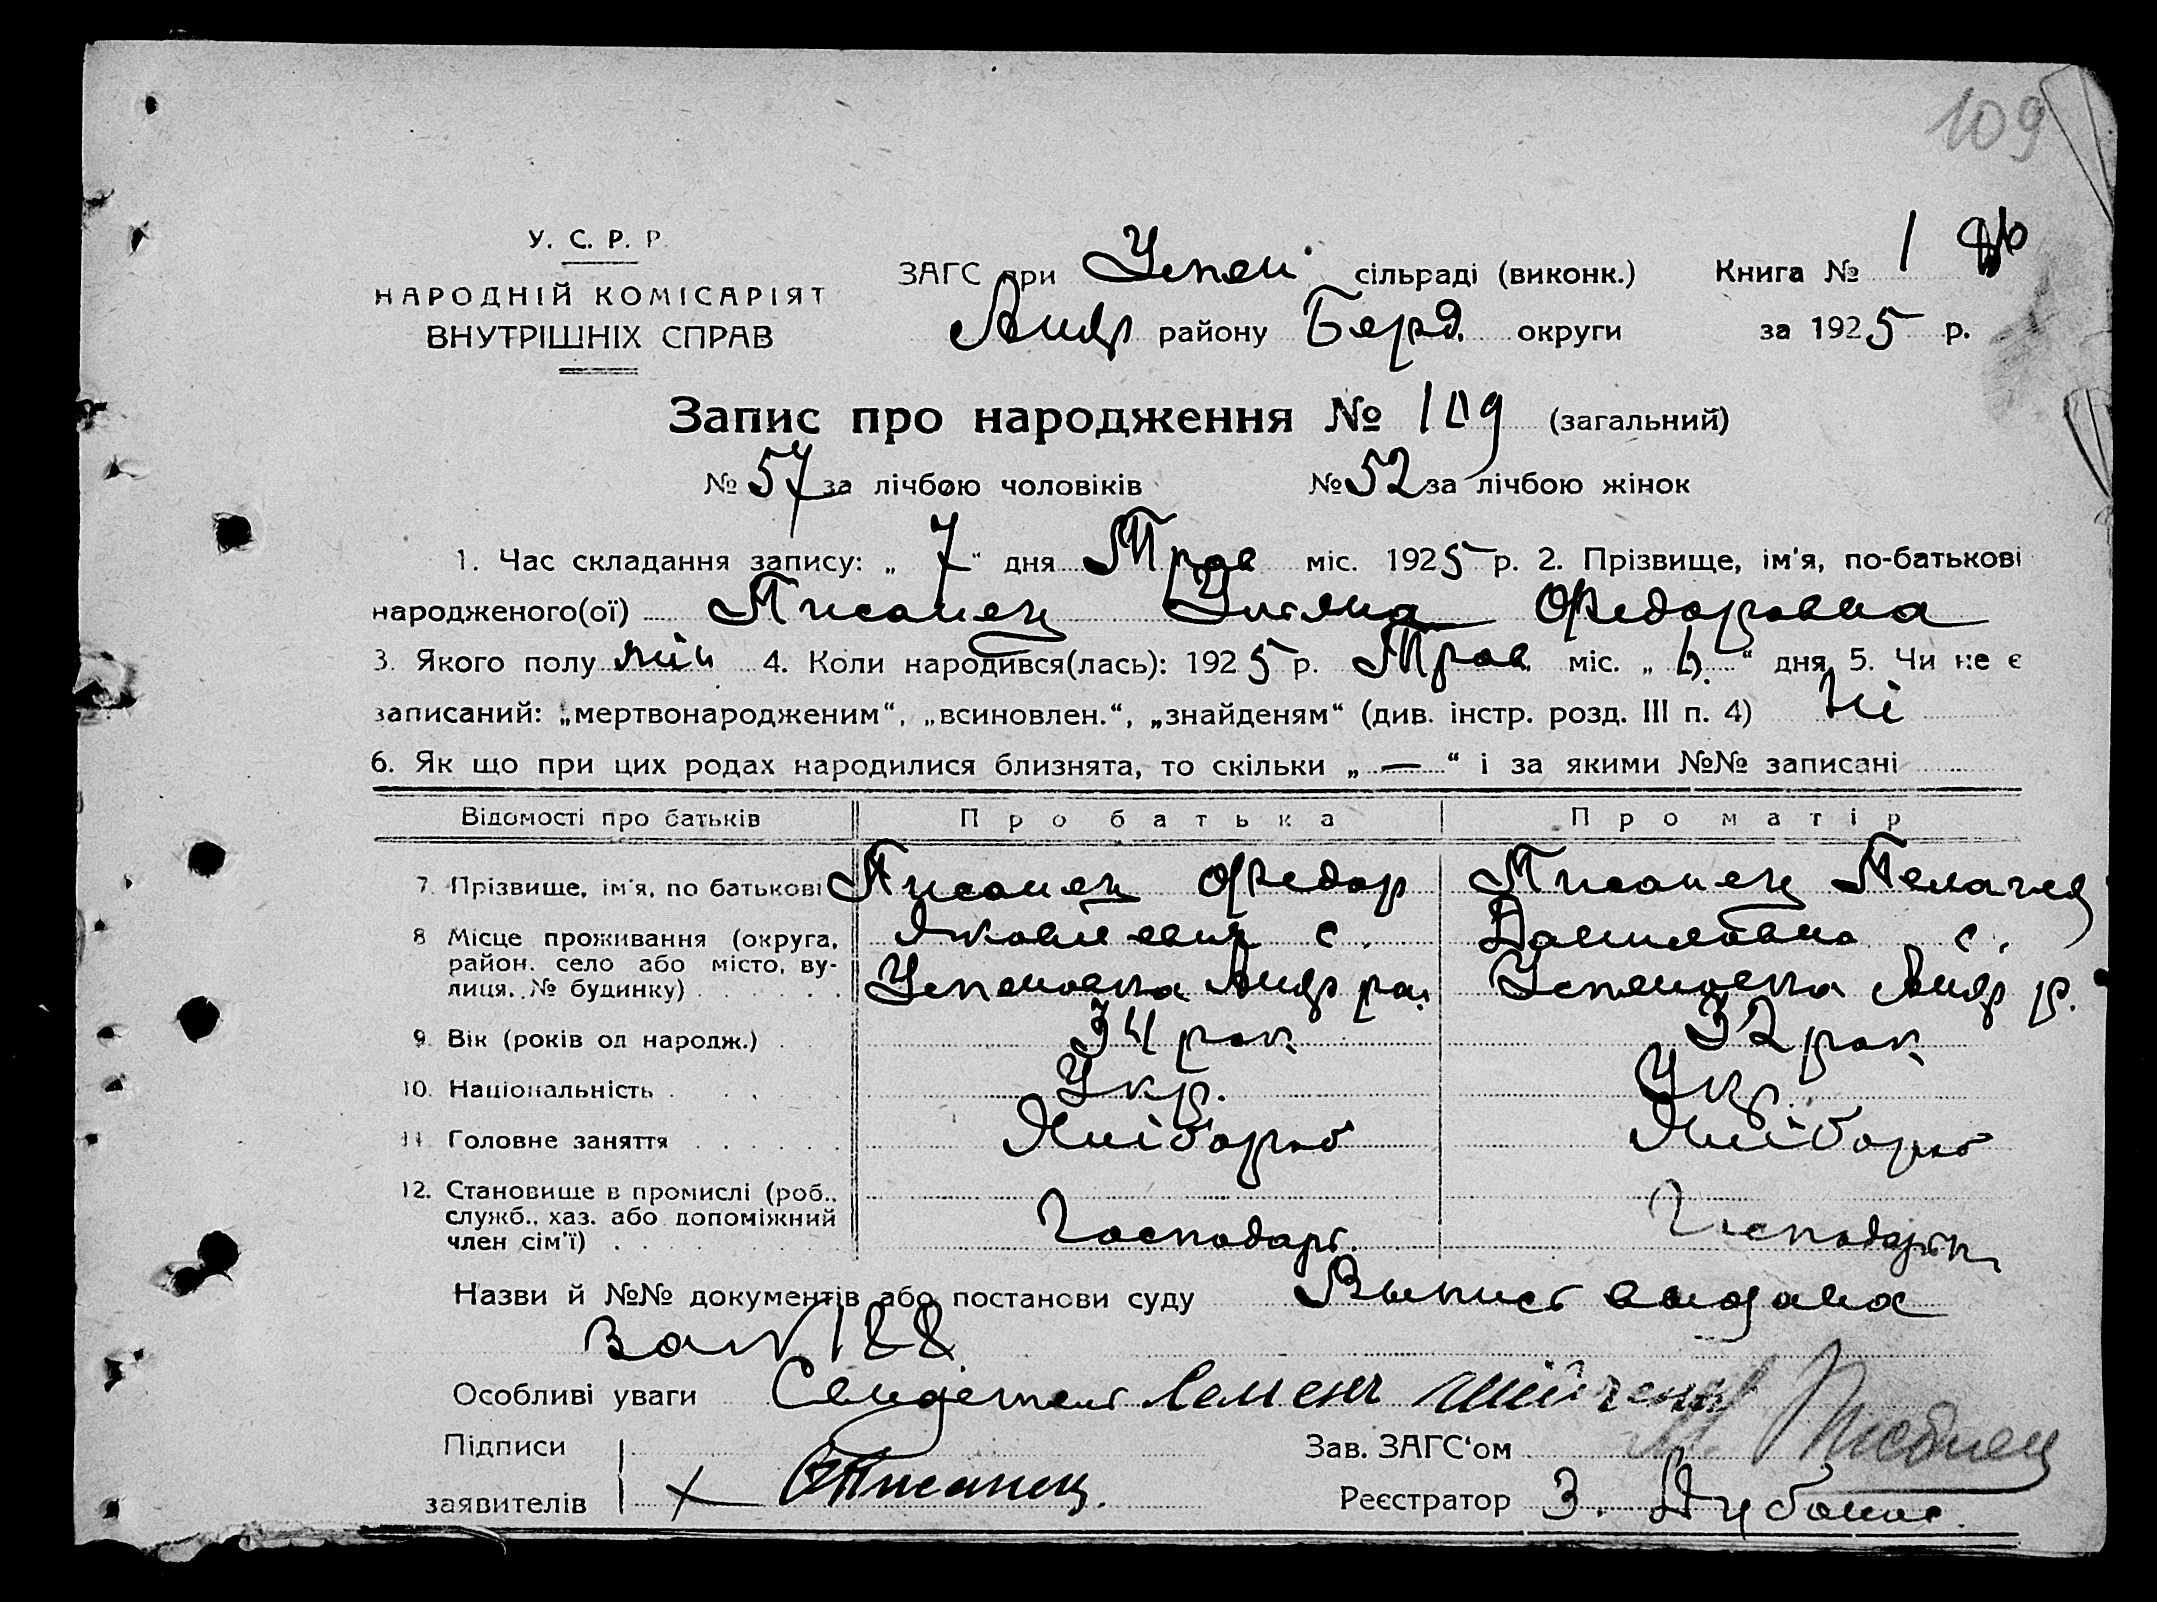 109
У. С. Р. Р.
НАРОДНІЙ КОМІСАРІЯТ
ВНУТРІШНІХ СПРАВ
ЗАГС при Успен сільраді (виконк.) Книга № 1
Андр району Берд. округи за 1925 р.
Запис про народження № 109 (загальний)
№ 57 за лічбою чоловіків № 52 за лічбою жінок
1. Час складання запису: „ 7 “ дня Трав міс. 1925 р. 2. Прізвище, ім'я, по-батькові
народженого(ої) Писанец Улияна Федоровна
3. Якого полу жін 4. Коли народився(лась): 1925 р. Трав міс. „ 6. “ дня 5. Чи не є
записаний: „мертвонародженим“, „всиновлен.“, „знайденям“ (див. інстр. розд. III п. 4) Ні
6. Як що при цих родах народилися близнята, то скільки „ — “ і за якими №№ записані
Відомості про батьків Про батька Про матір
7. Прізвище, ім'я, по батькові Писанец Федор Писанец Пелагия
8 Місце проживання (округа, Яковлевич с. Даниловна с.
район, село або місто, ву-
лиця, № будинку) Успеновка Андр ра. Успеновка Андр р.
9. Вік (років од народж.) 34 рок 32 рок
10. Національність Укр. Укр.
11 Головне заняття Хлібороб Хлібороб
12. Становище в промислі (роб.,
служб., хаз. або допоміжний
член сім'ї) Господар. Господарк
Назви й №№ документів або постанови суду Выпись выдана
за N 188
Особливі уваги Свидетель Семен
Підписи Зав. ЗАГС'ом М. Писанец
заявителів Ф Писанец. Реєстратор З.